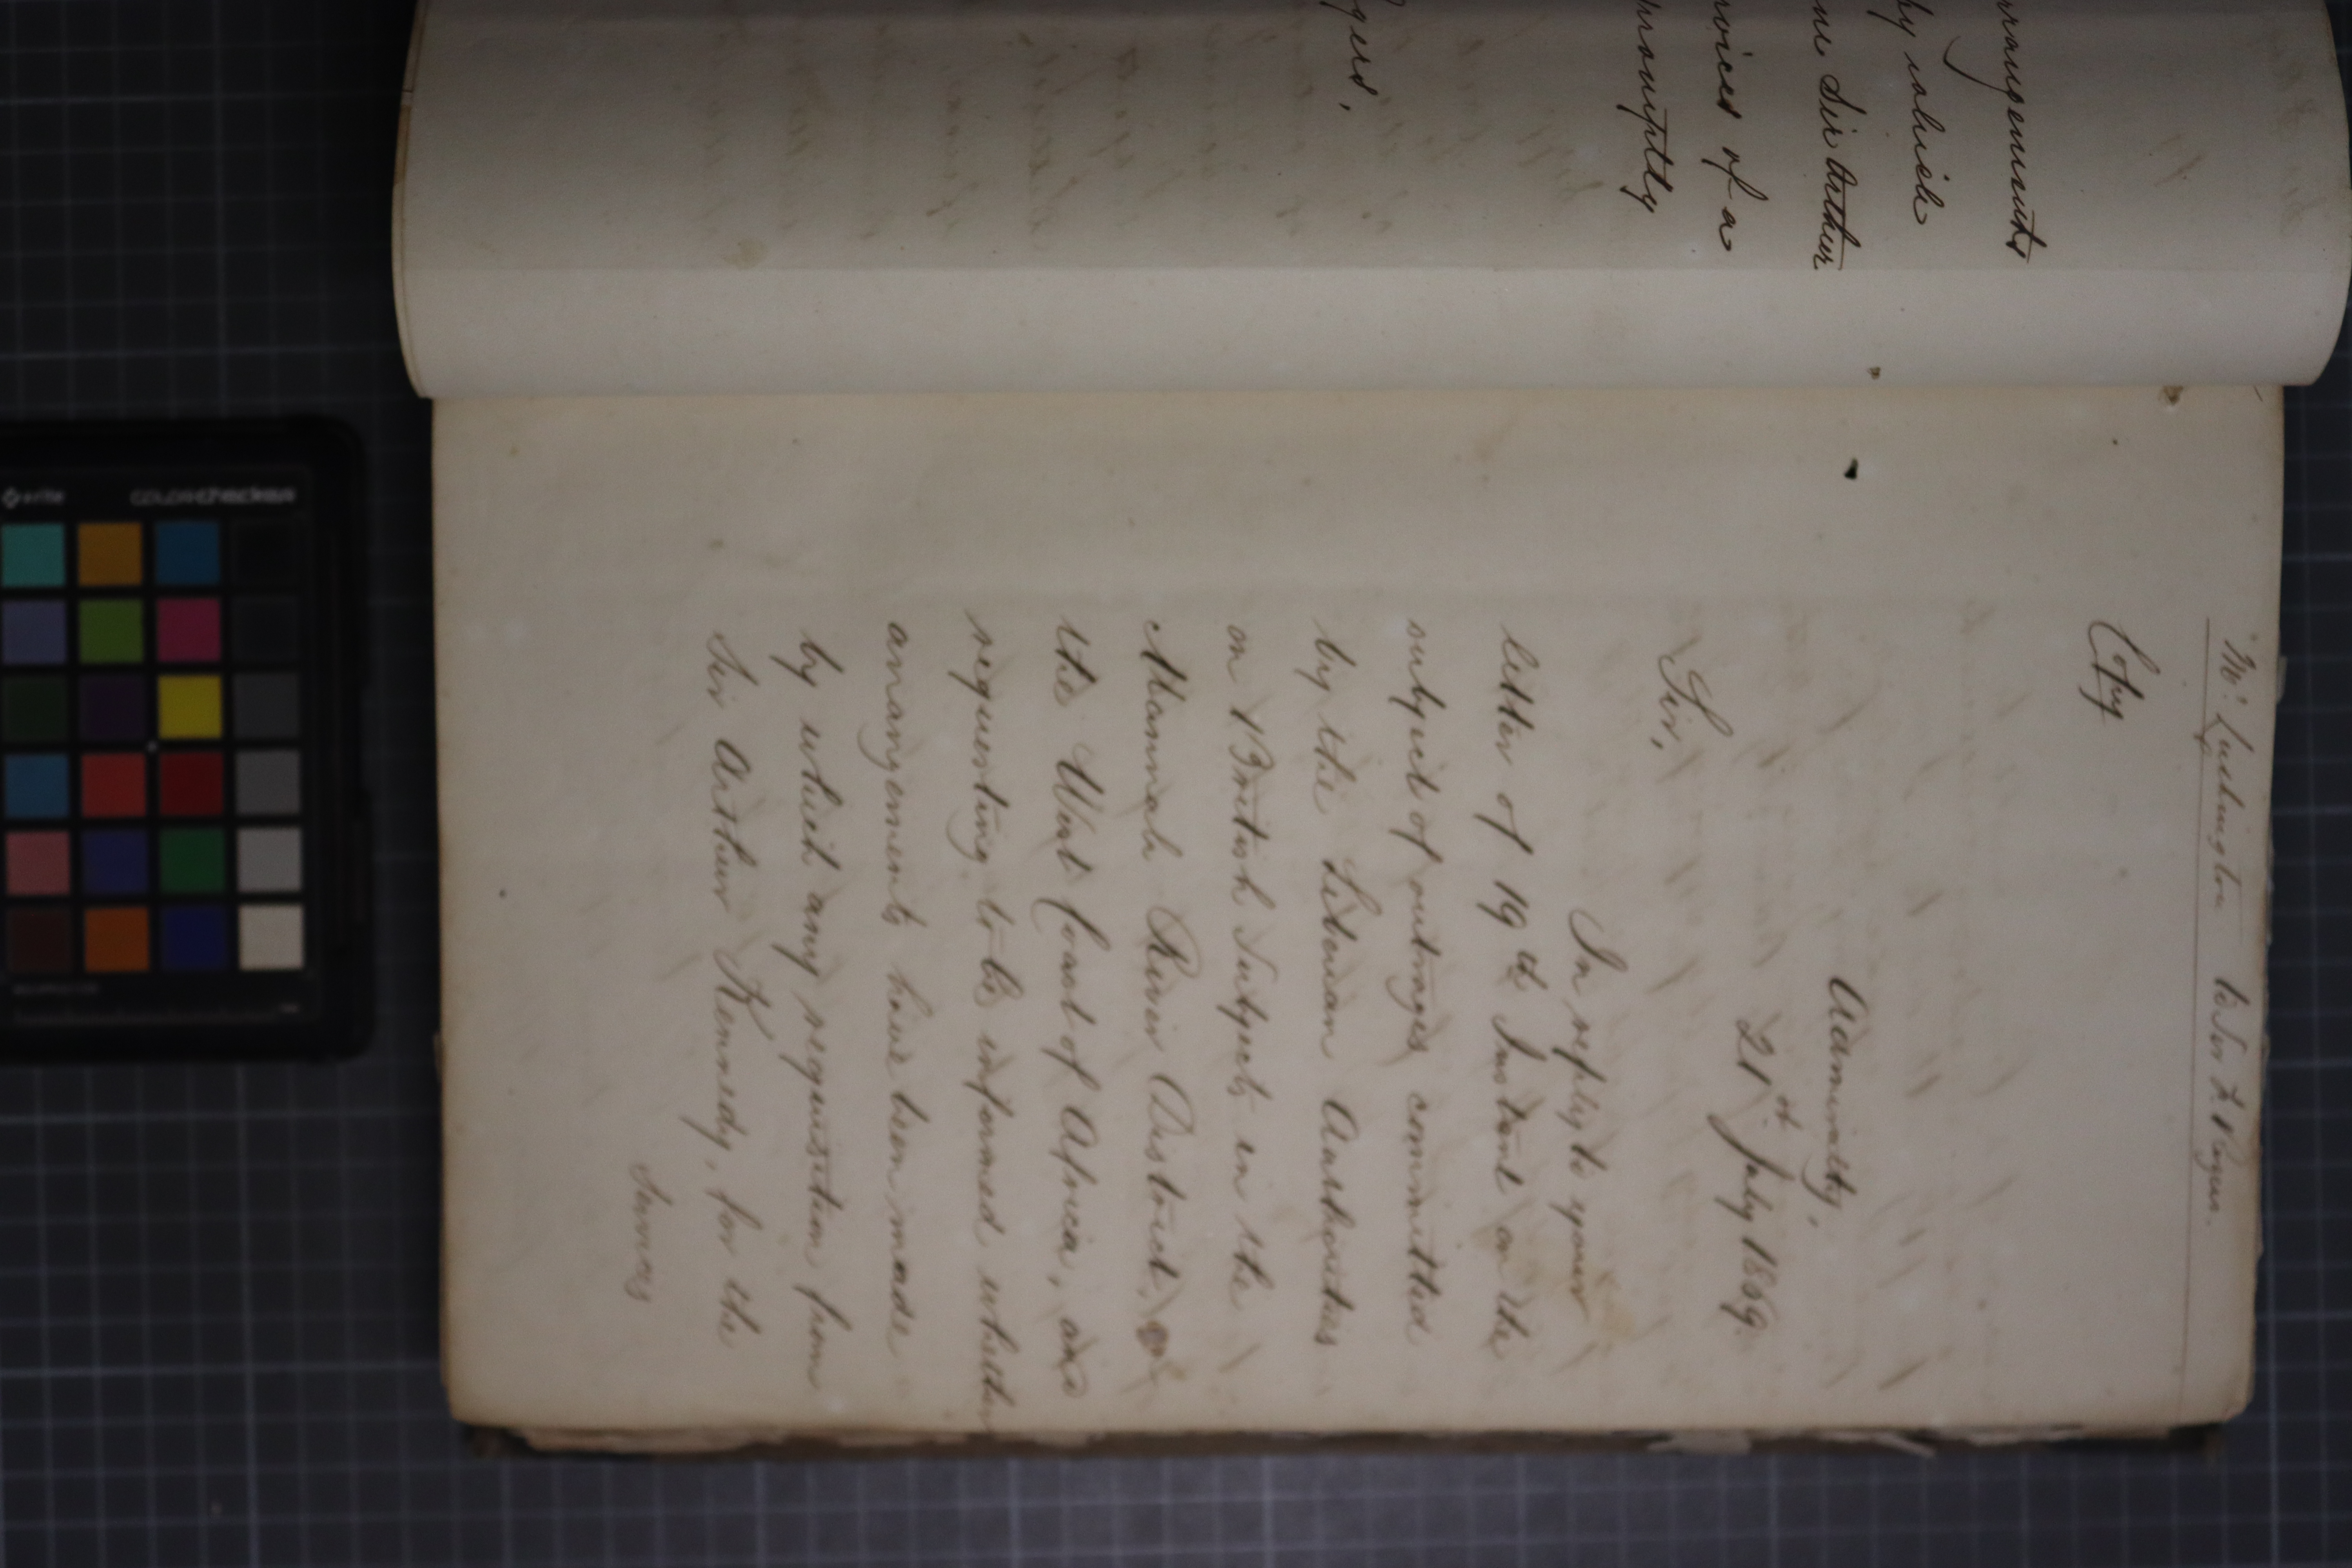 rrangements
by which
om Sir Arthur
rvices of a
promptly
gers,
Mr. Lushington to Sir F. Rogers.
Copy
Admiralty,
21st July 1869.
Sir,
In reply to your
letter of 19th Instant on the
subject of outrages committed
by the Liberian Authorities
on British Subjects in the
Mannah River District,
the West Coast of Africa, and
requesting to be informed whether
arrangements have been made
by which any requisition from
Sir Arthur Kennedy, for the
Services